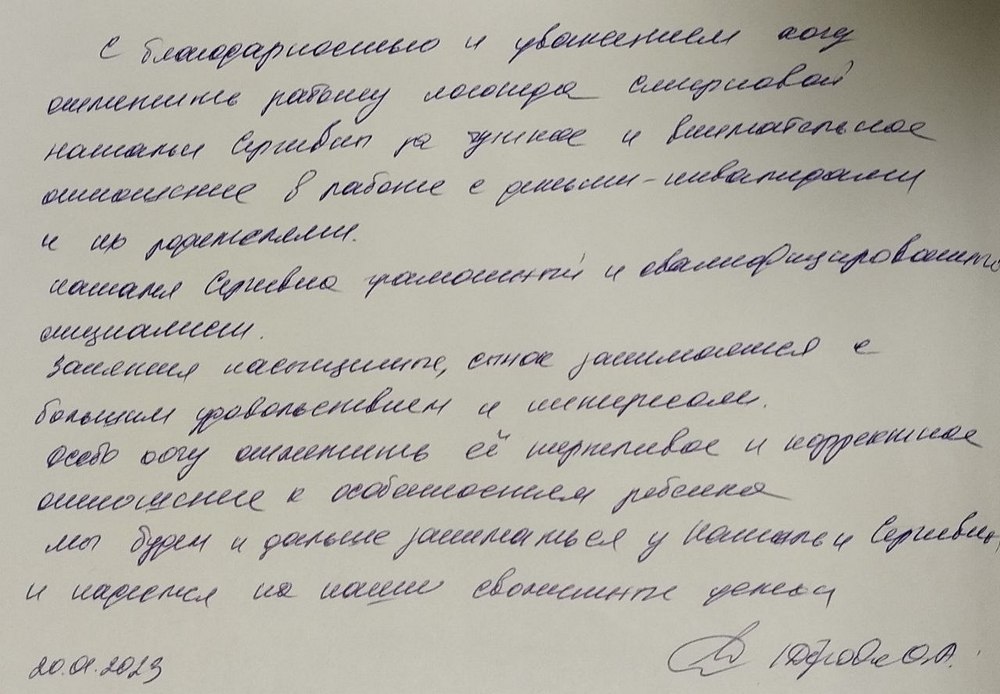 С благодарностью и уважением хочу
отметить работу логопеда Смирновой
Натальи Сергевны за чуткое и внимательное
отношение в работе с детьми-инвалидами
и их родителями.
Наталия Сергевна грамотный и квалифицированный
специалист.
Занятия насыщинные, сынок занимается с
большим удовольствием и интересом.
Особо хочу отметить её терпеливое и корректное
отношение к особенностям ребенка
Мы будем и дальше заниматься у Натальи Сергевны
и надеемся на наши сложинные
20.01.2023 О.А.